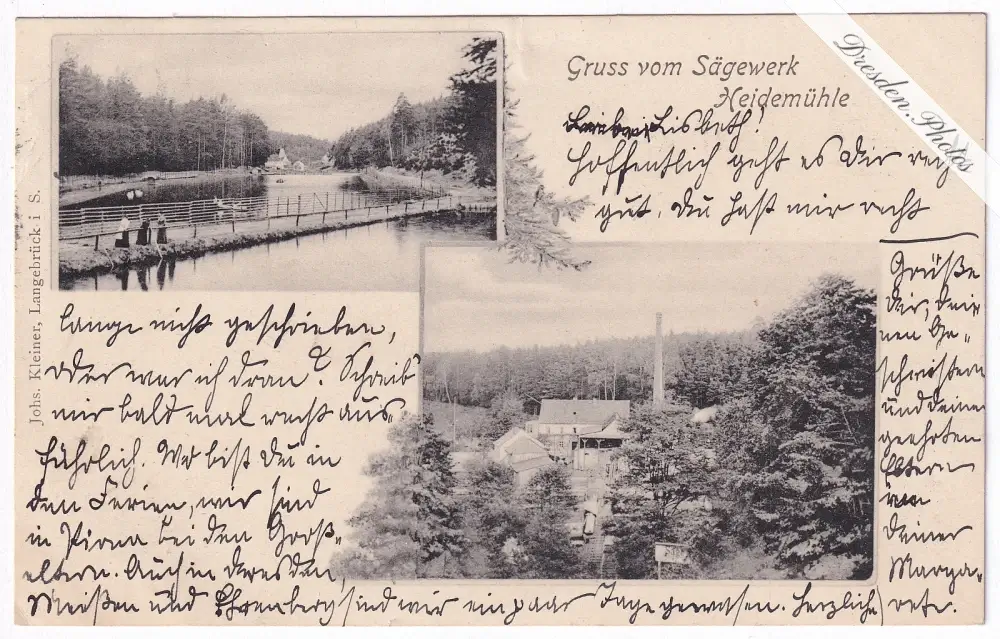 Gruss vom Sägewerk
Heidemühle
Dresden.Photos
Johs. Kleiner, Langebrück i S.
Liebe Lisbeth!
Hoffentlich geht es Dir recht
gut. Du hast mir recht
lange nicht geschrieben,
oder war ich dran? Schreib'
mir bald mal recht aus-
führlich. Wo bist Du in
den Ferien, wir sind
in Pirna bei den Groß-
eltern. Auch in Dresden,
Meißen und Ehrenberg sind wir ein paar Tage gewesen. Herzliche
Grüße
Dir, Dei-
nen Ge-
schwistern
und Deinen
geehrten
Eltern
von
Deiner
Marga-
rete.